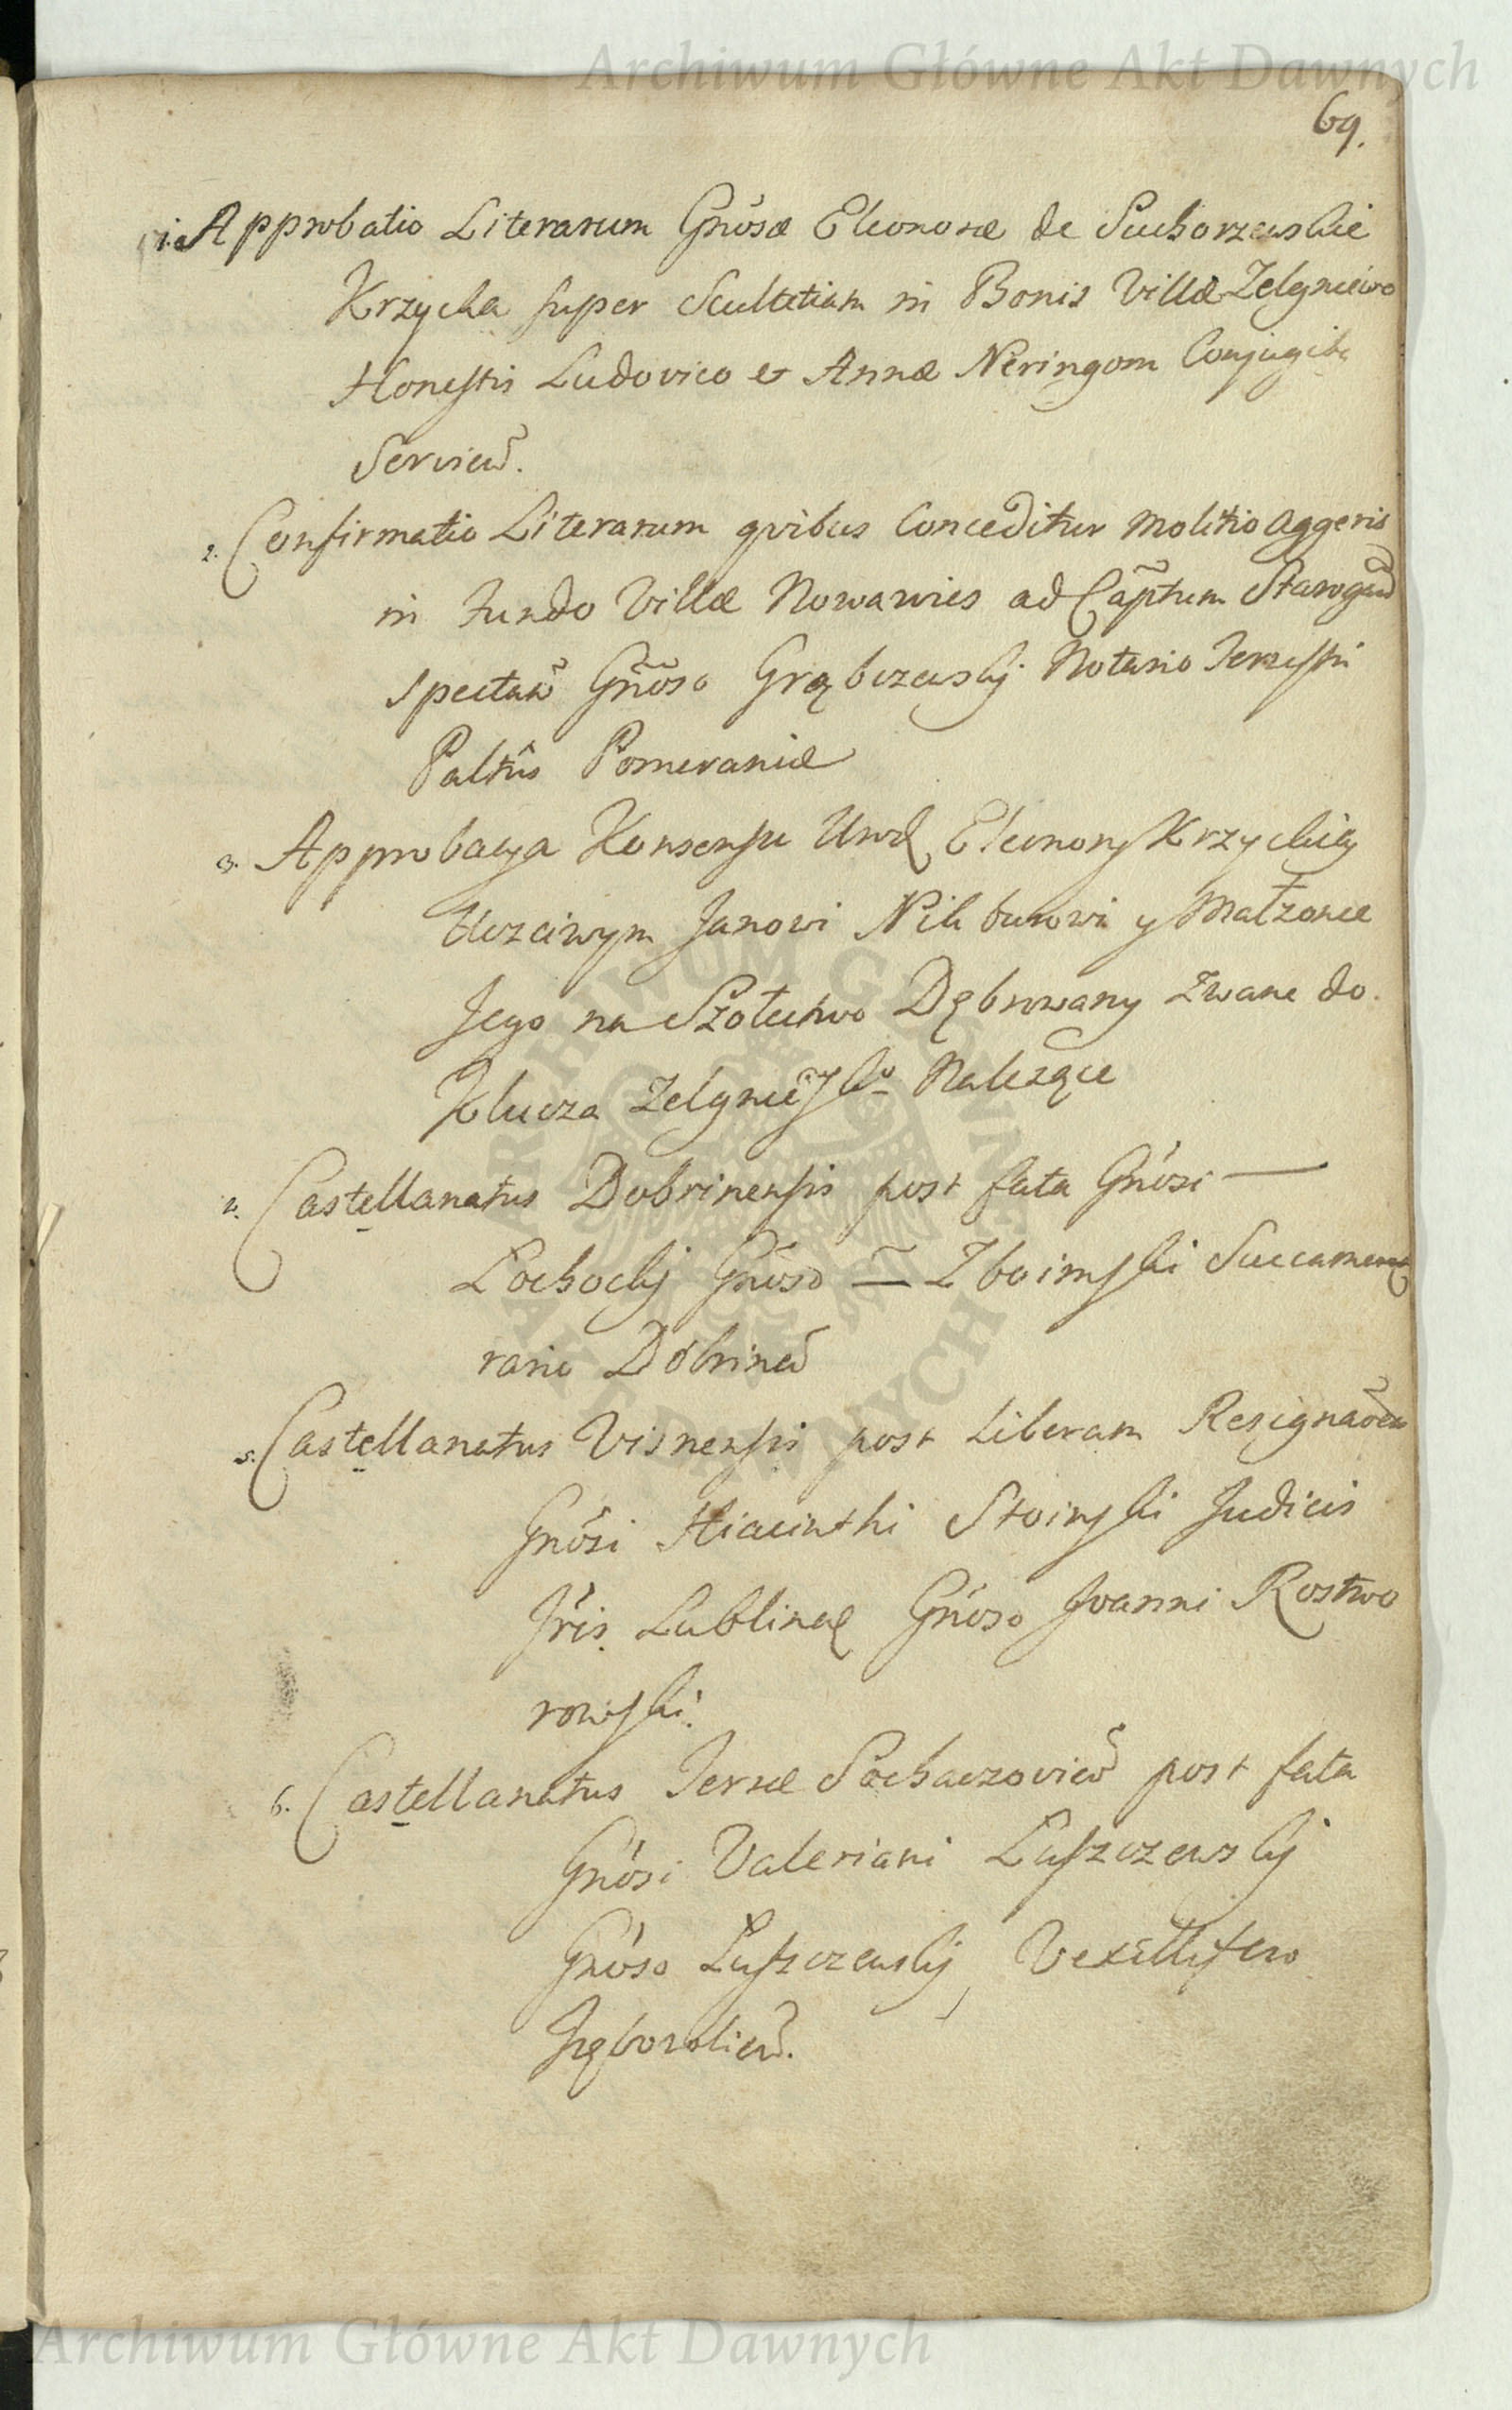 Archiwum Główne Akt Dawnych
69.
1. Approbatio Literarum Gnősæ Eleonoræ de Suchorzewskie
Krzycka super Scultetiam in Bonis Villæ Zelgniewo
Honestis Ludovico et Annæ Neringom Conjugib
Servien.
2. Confirmatio Literarum qvibus Conceditur molitio aggeris
in Fundo Villæ Nowawies ad Captum Starogard
spectan Gnoso Grąbczewskij Notario Terrestri
Paltûs Pomeraniæ
3. Approbacya Konsensu Urod Eleonory Krzyckiey
Uczciwym Janowi Nik burowi y Małzonce
Jego na Szołectwo Dębrowany Zwane do
Klucza Zelgnie Nalezące
4. Castellanatus Dobrinensis post fata Gnosi —
Lochockij Gnoso — Zboinski Succame
rario Dobrinen
5. Castellanatus Visnensis post Liberam Resignaoem
Gnosi Hiacinthi Stoinski Judicis
Tris Lublinen Gnoso Joanni Rostwo
rowski.
6. Castellanatus Terræ Sochaczovien post fata
Gnosi Valeriani Luszczewskij
Gnoso Luszczewskij Vexillifero

Archiwum Główne Akt Dawnych